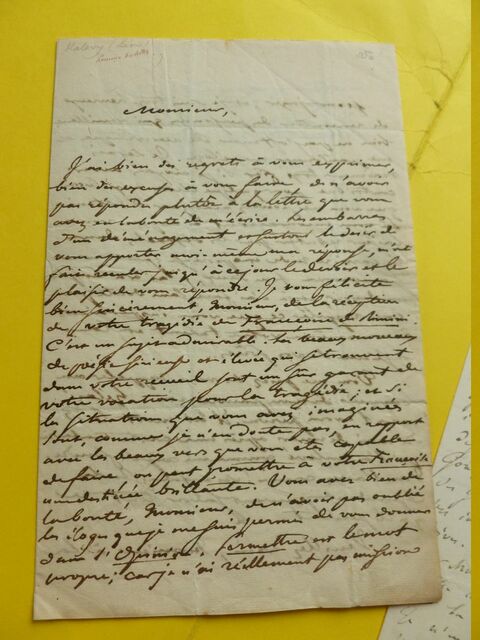 Halevy (Léon)
Monsieur,
J'ai bien des regrets à vous exprimer,
bien des excuses à vous faire, de n'avoir
pas répondu plutôt à la lettre que vous
avez eu la bonté de m'écrire. Les embarras
d'un déménagement et surtout le désir de
vous apporter moi-même ma réponse, m'ont
fait reculer jusqu'à ce jour le devoir et le
plaisir de vous répondre. Je vous félicite
bien sincèrement, Monsieur, de la réception
de votre tragédie de Françoise de Rimini.
C'est un sujet admirable. Les beaux morceaux
de poésie sérieuse et élevée qui se trouvent
dans votre recueil sont un sûr garant de
votre vocation pour la tragédie; et si
les situations que vous avez imaginées
sont, comme je n'en doute pas, en rapport
avec les beaux vers que vous êtes capable
de faire, on peut promettre à votre Françoise
une destinée brillante. Vous avez bien de
la bonté, Monsieur, de n'avoir pas oublié
les éloges que je me suis permis de vous donner
dans l'Opinion. Permettre est le mot
propre; car je n'ai réellement pas mission